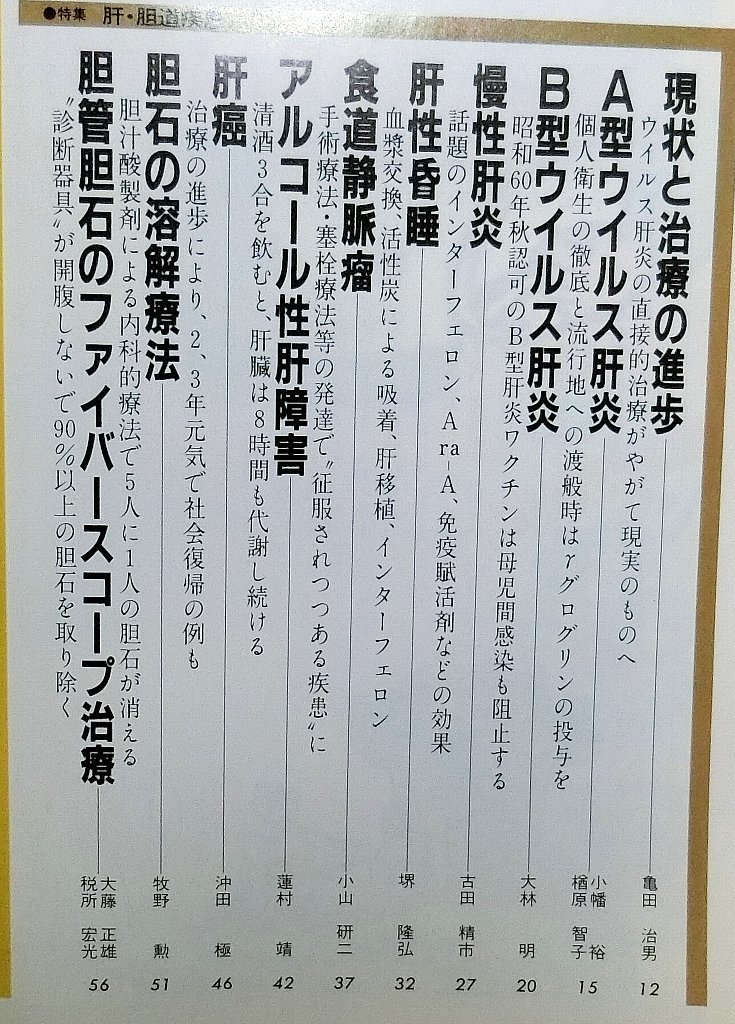 ●特集 肝・胆道疾患
現状と治療の進歩
ウイルス肝炎の直接的治療がやがて現実のものへ
亀田 治男
12
A型ウイルス肝炎
個人衛生の徹底と流行地への渡般時はγグログリンの投与を
小幡 裕
楢原 智子
15
B型ウイルス肝炎
昭和60年秋認可のB型肝炎ワクチンは母児間感染も阻止する
大林 明
20
慢性肝炎
話題のインターフェロン、Ara-A、免疫賦活剤などの効果
古田 精市
27
肝性昏睡
血漿交換、活性炭による吸着、肝移植、インターフェロン
堺 隆弘
32
食道静脈瘤
手術療法・塞栓療法等の発達で〝征服されつつある疾患〟に
小山 研二
37
アルコール性肝障害
清酒3合を飲むと、肝臓は8時間も代謝し続ける
蓮村 靖
42
肝癌
治療の進歩により、2、3年元気で社会復帰の例も
沖田 極
46
胆石の溶解療法
胆汁酸製剤による内科的療法で5人に1人の胆石が消える
牧野 勲
51
胆管胆石のファイバースコープ治療
〝診断器具〟が開腹しないで90%以上の胆石を取り除く
大藤 正雄
税所 宏光
56